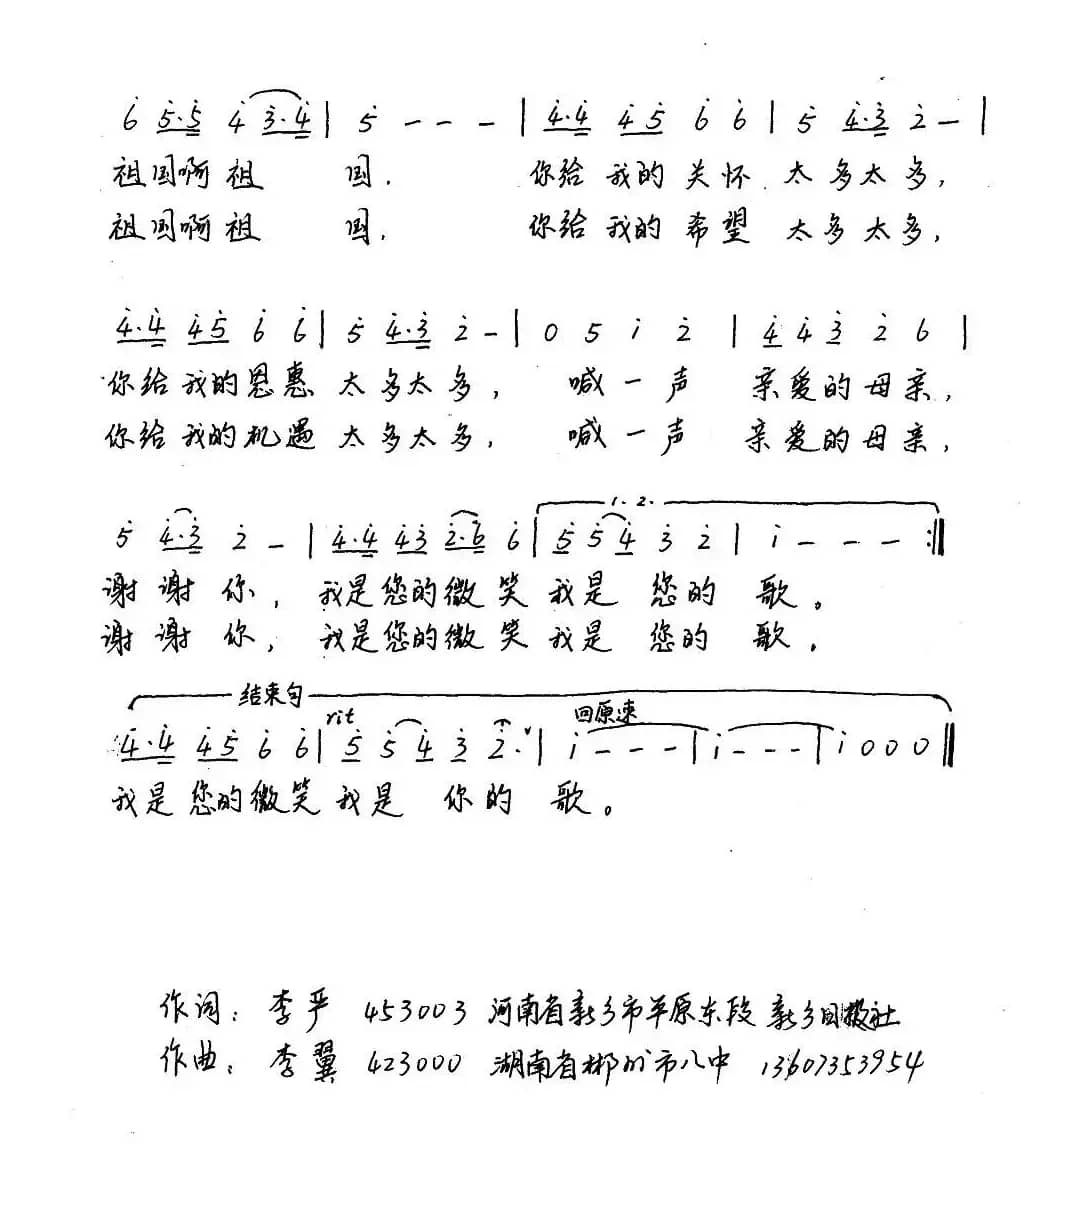 6 5·5 4 3·4 | 5 - - - | 4·4 45 6 6 | 5 4·3 2 - |
祖国啊祖 国. 你给我的关怀太多太多,
祖国啊祖 国. 你给我的希望太多太多,
4·4 45 6 6 | 5 4·3 2 - | 0 5 i 2 | 4 4 3 2 6 |
你给我的恩惠太多太多, 喊一声 亲爱的母亲,
你给我的机遇太多太多, 喊一声 亲爱的母亲,
1. 2.
5 4·3 2 - | 4·4 43 2·6 6 | 5 5 4 3 2 | i - - - :||
谢谢你, 我是您的微笑我是 您的 歌。
谢谢你, 我是您的微笑我是 您的 歌.
结束句
rit 回原速
4·4 45 6 6 | 5 5 4 3 2· | i - - - | i - - - | i 0 0 0 ||
我是您的微笑我是 你的 歌。
作词: 李严 453003 河南省新乡市平原东段 新乡日报社
作曲: 李翼 423000 湖南省郴州市八中 13607353954